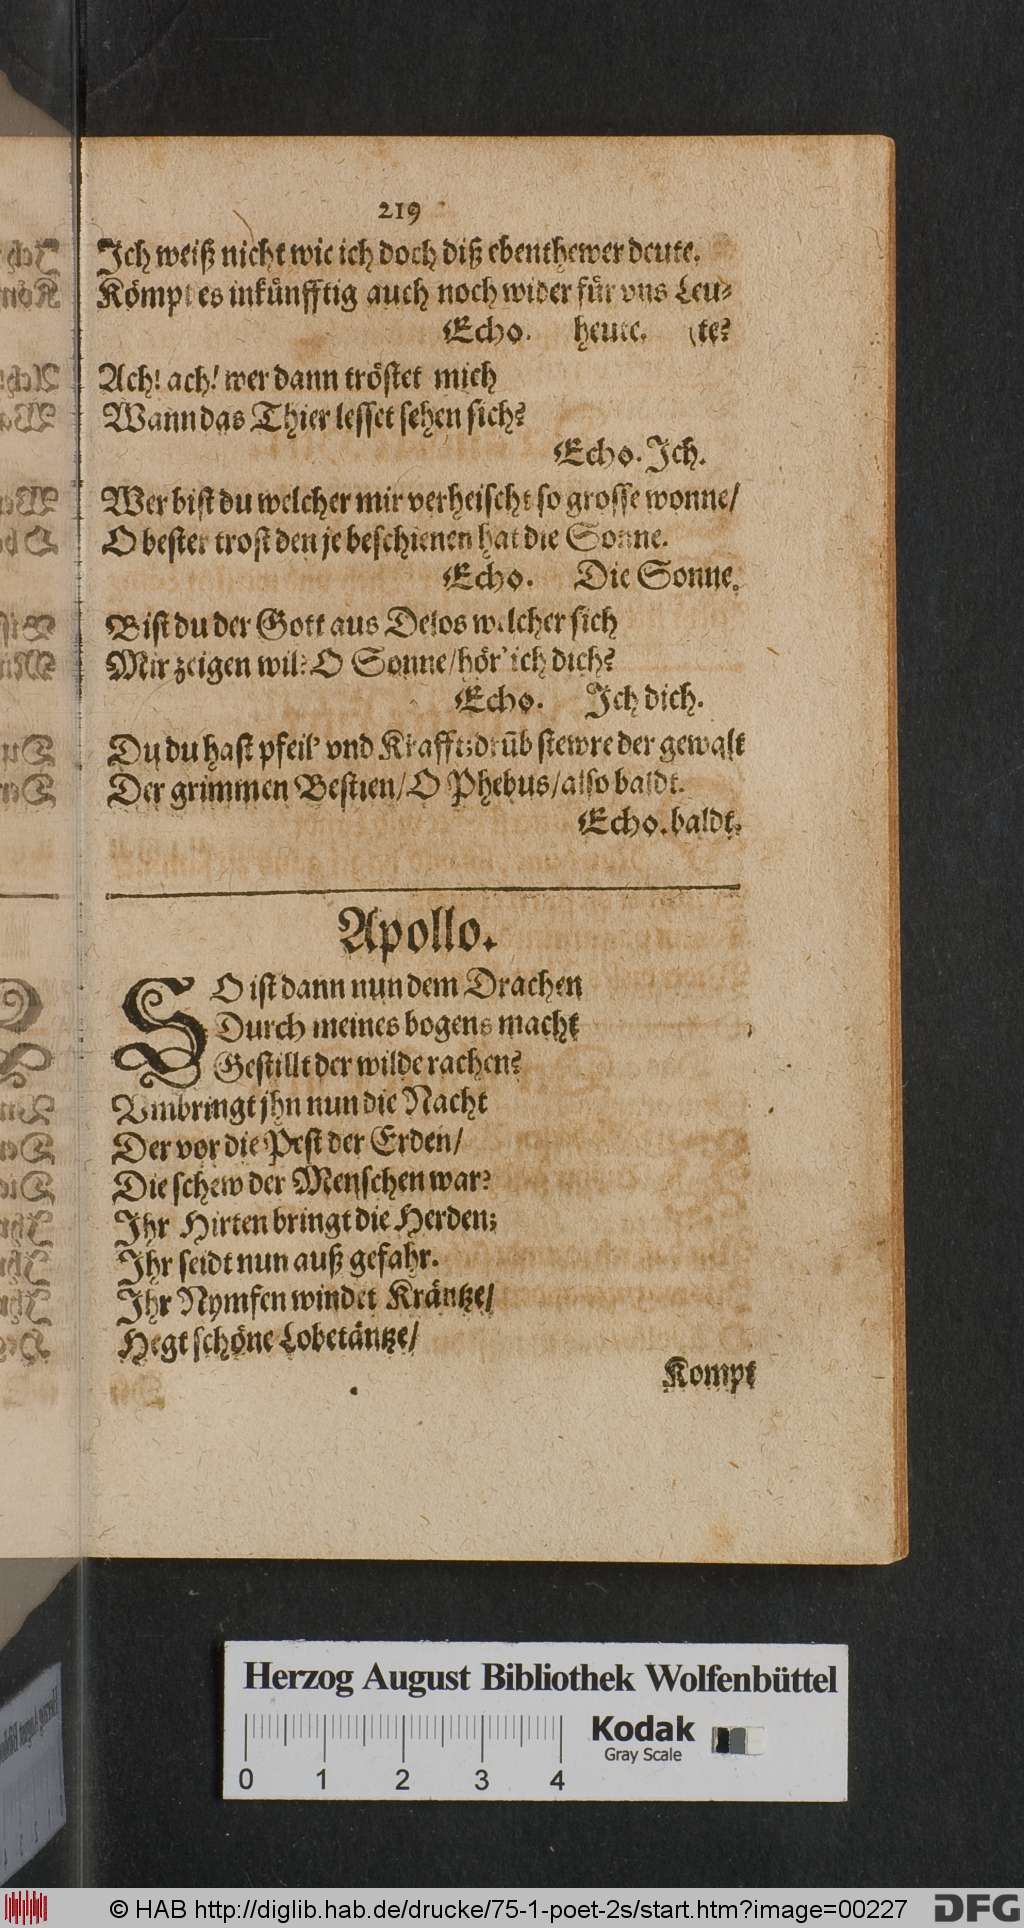 219
Ich weiß nicht wie ich doch diß ebenthewer deute.
Kömpt es inkünfftig auch noch wider für vns Leu-
Echo. heute. (te?
Ach! ach! wer dann tröstet mich
Wann das Thier lesset sehen sich?
Echo. Ich.
Wer bist du welcher mir verheischt so grosse wonne/
O bester trost den je beschienen hat die Sonne.
Echo. Die Sonne.
Bist du der Gott aus Delos welcher sich
Mir zeigen wil? O Sonne/hör' ich dich?
Echo. Ich dich.
Du du hast pfeil' vnd Krafft; drüb stewre der gewalt
Der grimmen Bestien/O Phebus/also baldt.
Echo. baldt.
Apollo.
SO ist dann nun dem Drachen
Durch meines bogens macht
Gestillt der wilde rachen?
Vmbringt jhn nun die Nacht
Der vor die Pest der Erden/
Die schew der Menschen war?
Ihr Hirten bringt die Herden;
Ihr seidt nun auß gefahr.
Ihr Nymfen windet Kräntze/
Hegt schöne Lobetäntze/
Kompt
Herzog August Bibliothek Wolfenbüttel
Kodak
Gray Scale
0 1 2 3 4
© HAB http://diglib.hab.de/drucke/75-1-poet-2s/start.htm?image=00227
DFG